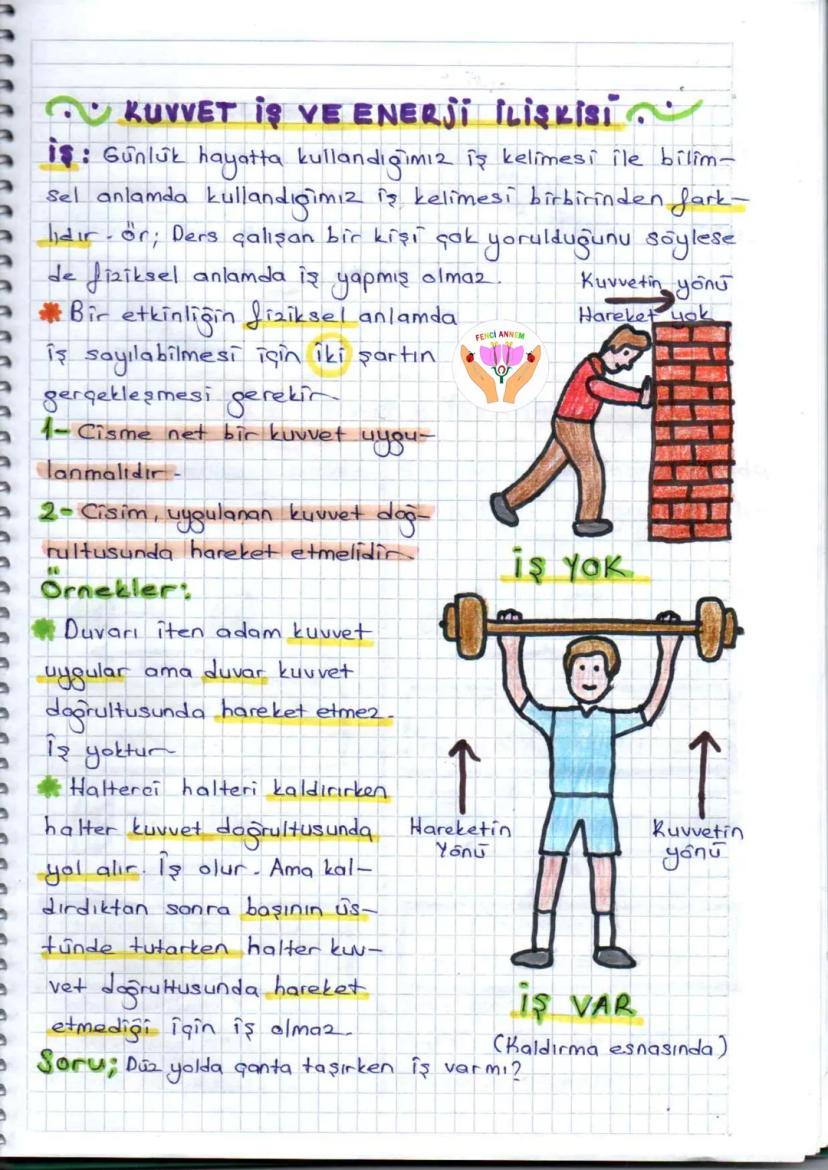 KUVVET İŞ VE ENERJİ İLİŞKİSİ
İŞ: Günlük hayatta kullandığımız iş kelimesi ile bilim-
sel anlamda kullandığımız iş kelimesi birbirinden fark-
lıdır. ör; Ders çalışan bir kişi çok yorulduğunu söylese
de fiziksel anlamda iş yapmış olmaz.
Kuvvetin yönü
Hareket yok
* Bir etkinliğin fiziksel anlamda
iş sayılabilmesi için iki şartın
gerçekleşmesi gerekir.
FENCİ ANNEM
1- Cisme net bir kuvvet uygu-
lanmalıdır.
2- Cisim, uygulanan kuvvet doğ-
rultusunda hareket etmelidir.
İŞ YOK
Örnekler:
* Duvarı iten adam kuvvet
uygular ama duvar kuvvet
doğrultusunda hareket etmez.
İş yoktur.
* Halterci halteri kaldırırken
halter kuvvet doğrultusunda
yol alır. İş olur. Ama kal-
dırdıktan sonra başının üs-
tünde tutarken halter kuv-
vet doğrultusunda hareket
etmediği için iş olmaz.
Hareketin
Yönü
Kuvvetin
yönü
İŞ VAR
(Kaldırma esnasında)
Soru; Düz yolda çanta taşırken iş var mı?